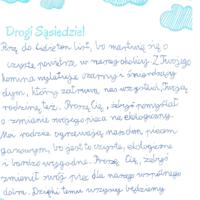 Drogi Sąsiedzie!
Piszę do Ciebie ten list, bo martwię się o
czyste powietrze w naszej okolicy. Z Twojego
komina wylatuje czarny i śmierdzący
dym, który zatruwa nas wszystkich, Twoją
rodzinę też. Proszę Cię, żebyś pomyślał
o zmianie swojego pieca na ekologiczny.
Moi rodzice ogrzewają nasz dom piecem
gazowym, bo jest to czyste, ekologiczne
i bardzo wygodne. Proszę Cię, żebyś
zmienił swój piec dla naszego wspólnego
dobra. Dzięki temu wszyscy będziemy